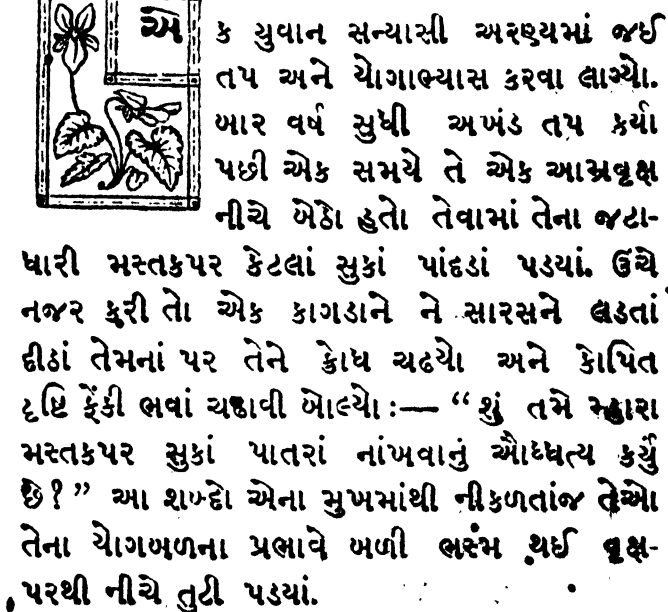 એક યુવાન સન્યાસી અરણ્યમાં જઈ
તપ અને યોગાભ્યાસ કરવા લાગ્યો.
બાર વર્ષ સુધી અખંડ તપ કર્યા
પછી એક સમયે તે એક આમ્રવૃક્ષ
નીચે બેઠો હતો તેવામાં તેના જટા-
ધારી મસ્તકપર કેટલાં સુકાં પાંદડાં પડયાં. ઉંચે
નજર કરી તો એક કાગડાને ને સારસને લડતાં
દીઠાં તેમનાં પર તેને ક્રોધ ચઢયો અને કોપિત
દૃષ્ટિ ફેંકી ભવાં ચઢાવી બોલ્યો :— “શું તમે મ્હારા
મસ્તકપર સુકાં પાતરાં નાંખવાનું ઔધ્ધત્ય કર્યું
છે?” આ શબ્દો એના મુખમાંથી નીકળતાંજ તેઓ
તેના યોગબળના પ્રભાવે બળી ભસ્મ થઈ વૃક્ષ-
પરથી નીચે તુટી પડયાં.